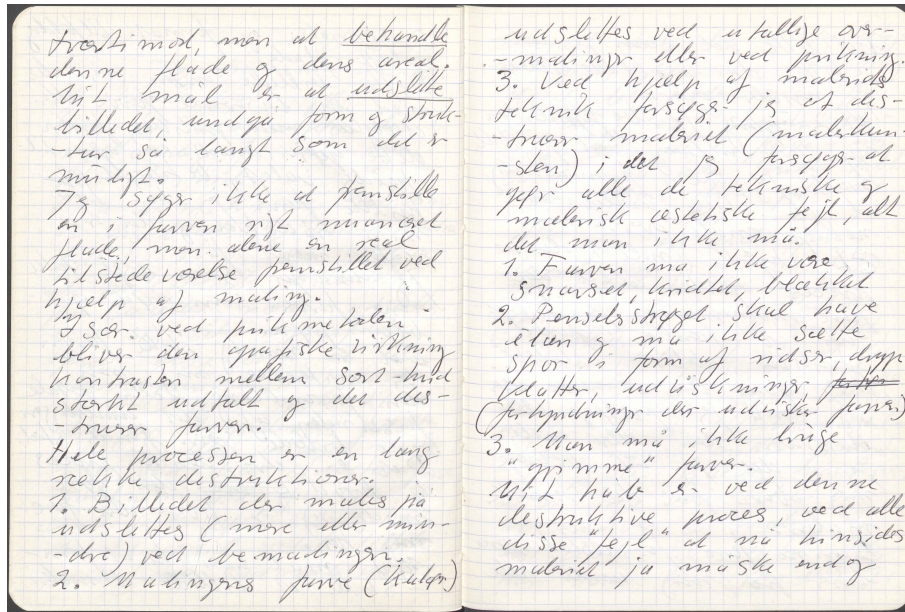 tværtimod, men at behandle
denne flade og dens areal.
Mit mål er at udslette
billedet, undgå form og struk-
-tur så langt som det er
muligt.
Jeg søger ikke at fremstille
en i farven rigt nuanceret
flade, men alene en real
tilstedeværelse fremstillet ved
hjælp af maling.
Især ved prikmetoden
bliver den grafiske virkning
kontrasten mellem sort-hvid
stærkt udtalt og det des-
-truerer farven.
Hele processen er en lang
række destruktioner.
1. Billedet der males på
udslettes (mere eller min-
-dre) ved bemalingen.
2. Malingens farve
udslettes ved utallige over-
-malinger eller ved prikning.
3. Ved hjælp af maleriets
teknik forsøger jeg at des-
-truere maleriet (malerkun-
-sten) idet jeg forsøger at
gøre alle de tekniske og
malerisk æstetiske fejl alt
det man ikke må.
1. Farven må ikke være
snavset, kridtet, blakket
2. Penselsstrøget skal have
élan og må ikke sætte
spor i form af ridser, dryp
pletter, udviskninger,
(fortyndninger der udvisker farven)
3. Man må ikke bruge
"grimme" farver.
Mit håb er ved denne
destruktive proces, ved alle
disse "fejl" at nå hinsides
maleriet ja måske endog